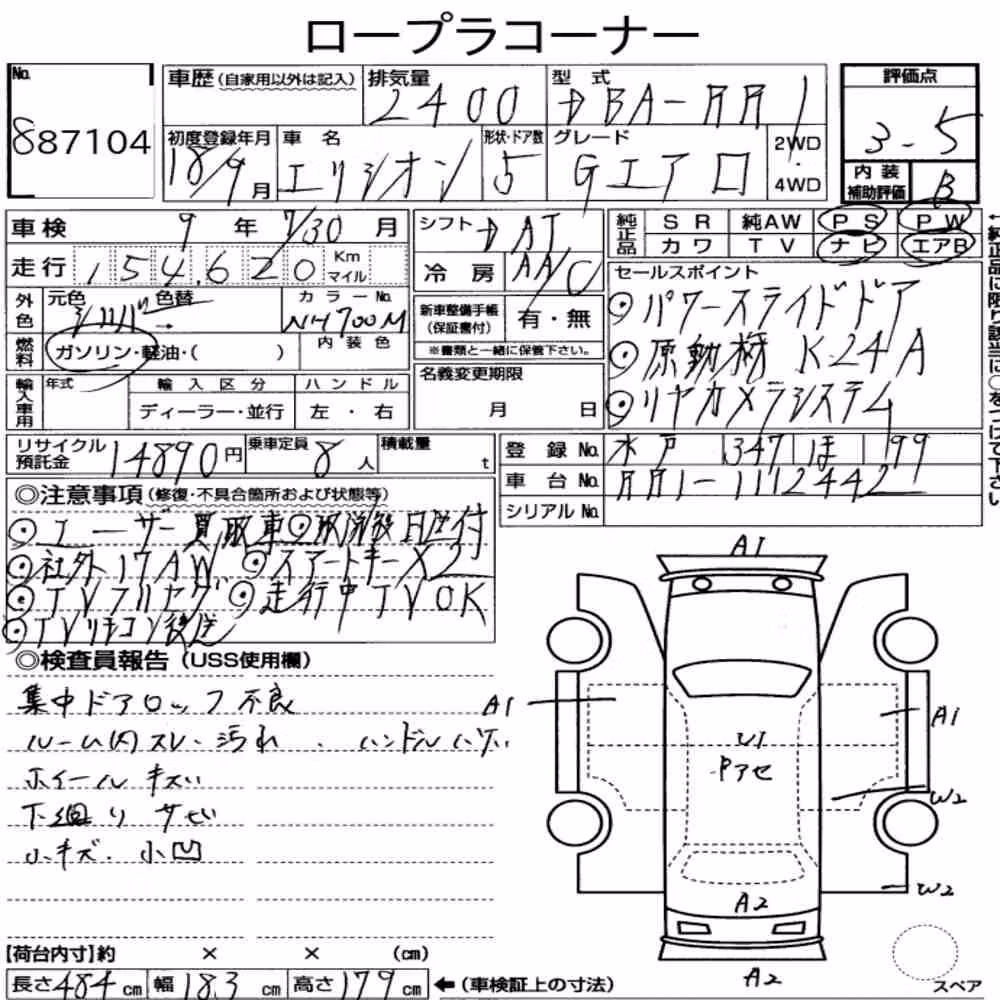 ロープラコーナー
No.
887104
車歴 (自家用以外は記入)
排気量
2400
型式
DBA-RR1
評価点
3.5
初度登録年月
18/9月
車名
エリシオン
形状・ドア数
5
グレード
Gエアロ
2WD
4WD
内装
補助評価
B
車検 9年 7/30月
シフト DAT
純正品
SR 純AW PS PW
カワ TV ナビ エアB
走行 154,620 Km マイル
冷房 AA/C
セールスポイント
⊙パワースライドドア
⊙原動機 K24A
⊙リヤカメラシステム
外色
元色 色替
シルバー→
カラーNo.
NH700M
新車整備手帳
(保証書付)
有・無
※書類と一緒に保管下さい。
燃料
ガソリン・軽油・( )
内装色
輸入車用
年式
輸入区分
ハンドル
ディーラー・並行
左・右
名義変更期限
月 日
←純正品に限り該当に○をつけて下さい
リサイクル
預託金
14890円
乗車定員
8人
積載量
t
登録No. 水戸 347 ほ 99
車台No. RR1-1112442
シリアルNo.
◎注意事項 (修復・不具合箇所および状態等)
⊙ユーザー買取車 ⊙取説後日送付
⊙社外17AW ⊙スマートキー×2
⊙TVフルセグ ⊙走行中TVOK
⊙TVリモコン後送
◎検査員報告 (USS使用欄)
集中ドアロック不良
ルーム内スレ・汚れ、ハンドルハゲ
ホイールキズ
下廻りサビ
小キズ・小凹
A1
A1
A1
U1
Pアセ
W2
W2
A2
A2
スペア
【荷台内寸】約 × × (cm)
長さ 484 cm 幅 183 cm 高さ 179 cm ←(車検証上の寸法)